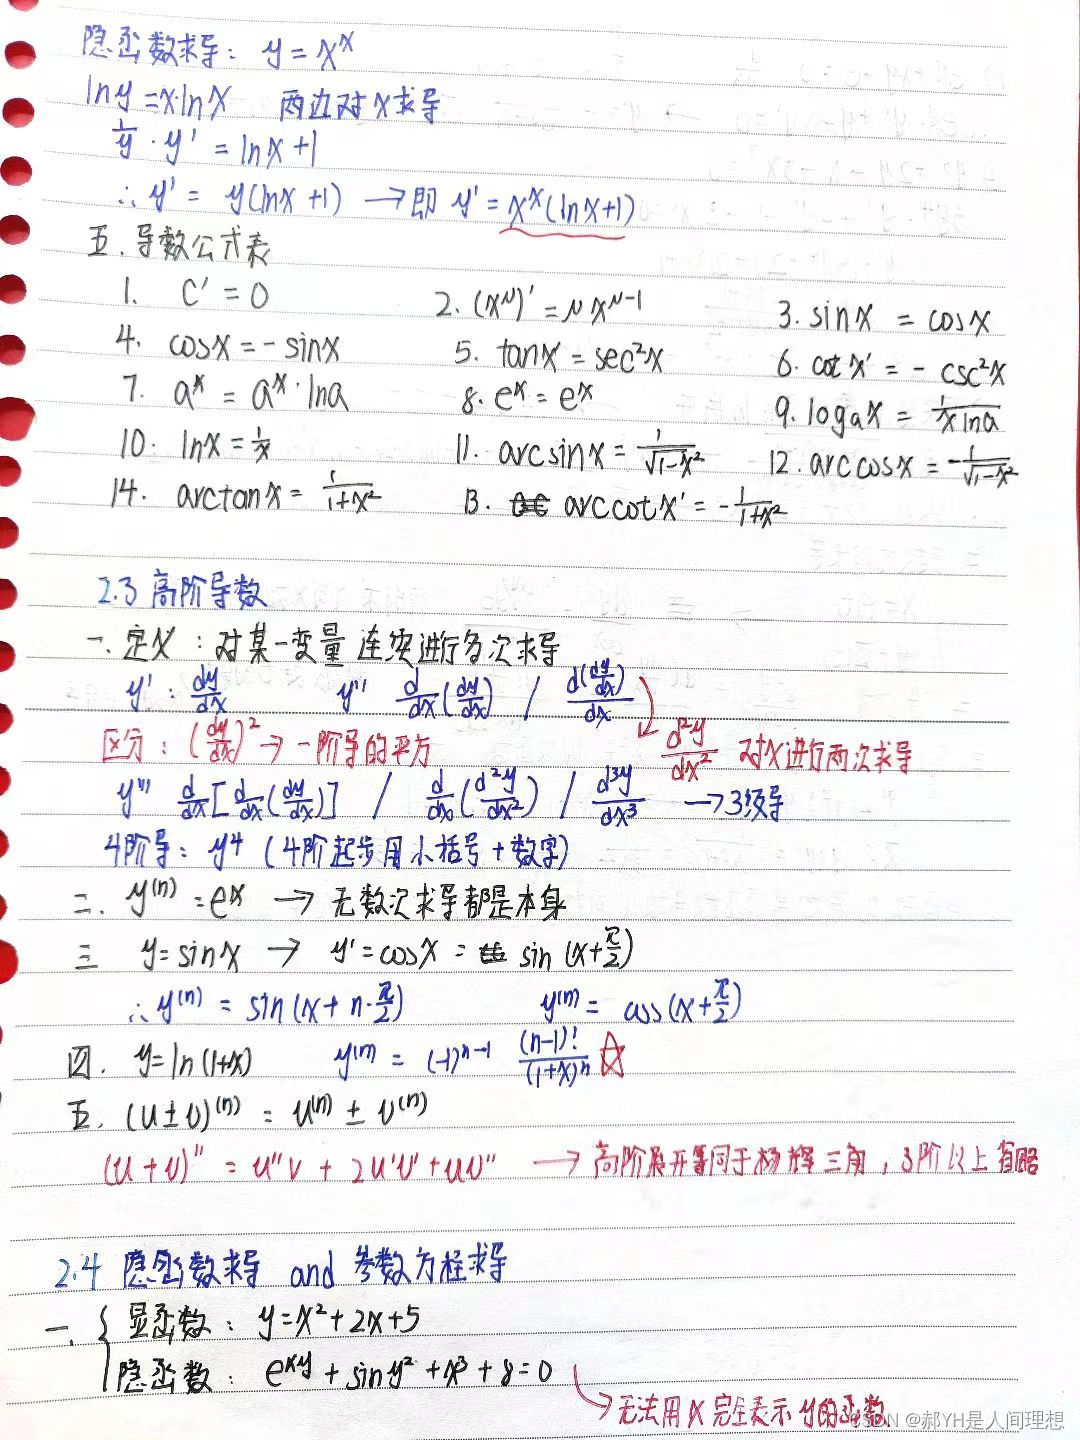 隐函数求导: y = x^x
lny = x·lnx 两边对x求导
1/y · y' = lnx+1
∴ y' = y(lnx+1) → 即 y' = x^x(lnx+1)
五. 导数公式表
1. C' = 0 2. (x^μ)' = μx^(μ-1) 3. sinx = cosx
4. cosx = -sinx 5. tanx = sec²x 6. cotx' = -csc²x
7. a^x = a^x·lna 8. e^x = e^x 9. logax = 1/(xlna)
10. lnx = 1/x 11. arcsinx = 1/√(1-x²) 12. arccosx = -1/√(1-x²)
14. arctanx = 1/(1+x²) 13. arccotx' = -1/(1+x²)
2.3 高阶导数
一. 定义: 对某一变量 连续进行多次求导
y': dy/dx y'' d/dx(dy/dx) / d(dy/dx)/dx
区分: (dy/dx)² → 一阶导的平方 d²y/dx² 对x进行两次求导
y''' d/dx[d/dx(dy/dx)] / d/dx(d²y/dx²) / d³y/dx³ → 3级导
4阶导: y4 (4阶起步用小括号+数字)
二. y^(n) = e^x → 无数次求导都是本身
三 y=sinx → y'=cosx = sin(x+π/2)
∴ y^(n) = sin(x+n·π/2) y^(n) = cos(x+π/2)
四. y=ln(1+x) y^(n) = (-1)^(n-1) (n-1)!/(1+x)^n ☆
五. (u±v)^(n) = u^(n) ± v^(n)
(u+v)'' = u''v + 2u'v' + uv'' → 高阶展开等同于杨辉三角, 3阶以上省略
2.4 隐函数求导 and 参数方程求导
一. { 显函数: y=x²+2x+5
隐函数: e^xy + siny² + x³ + 8 = 0
→ 无法用x完全表示y的函数
CSDN @郝YH是人间理想